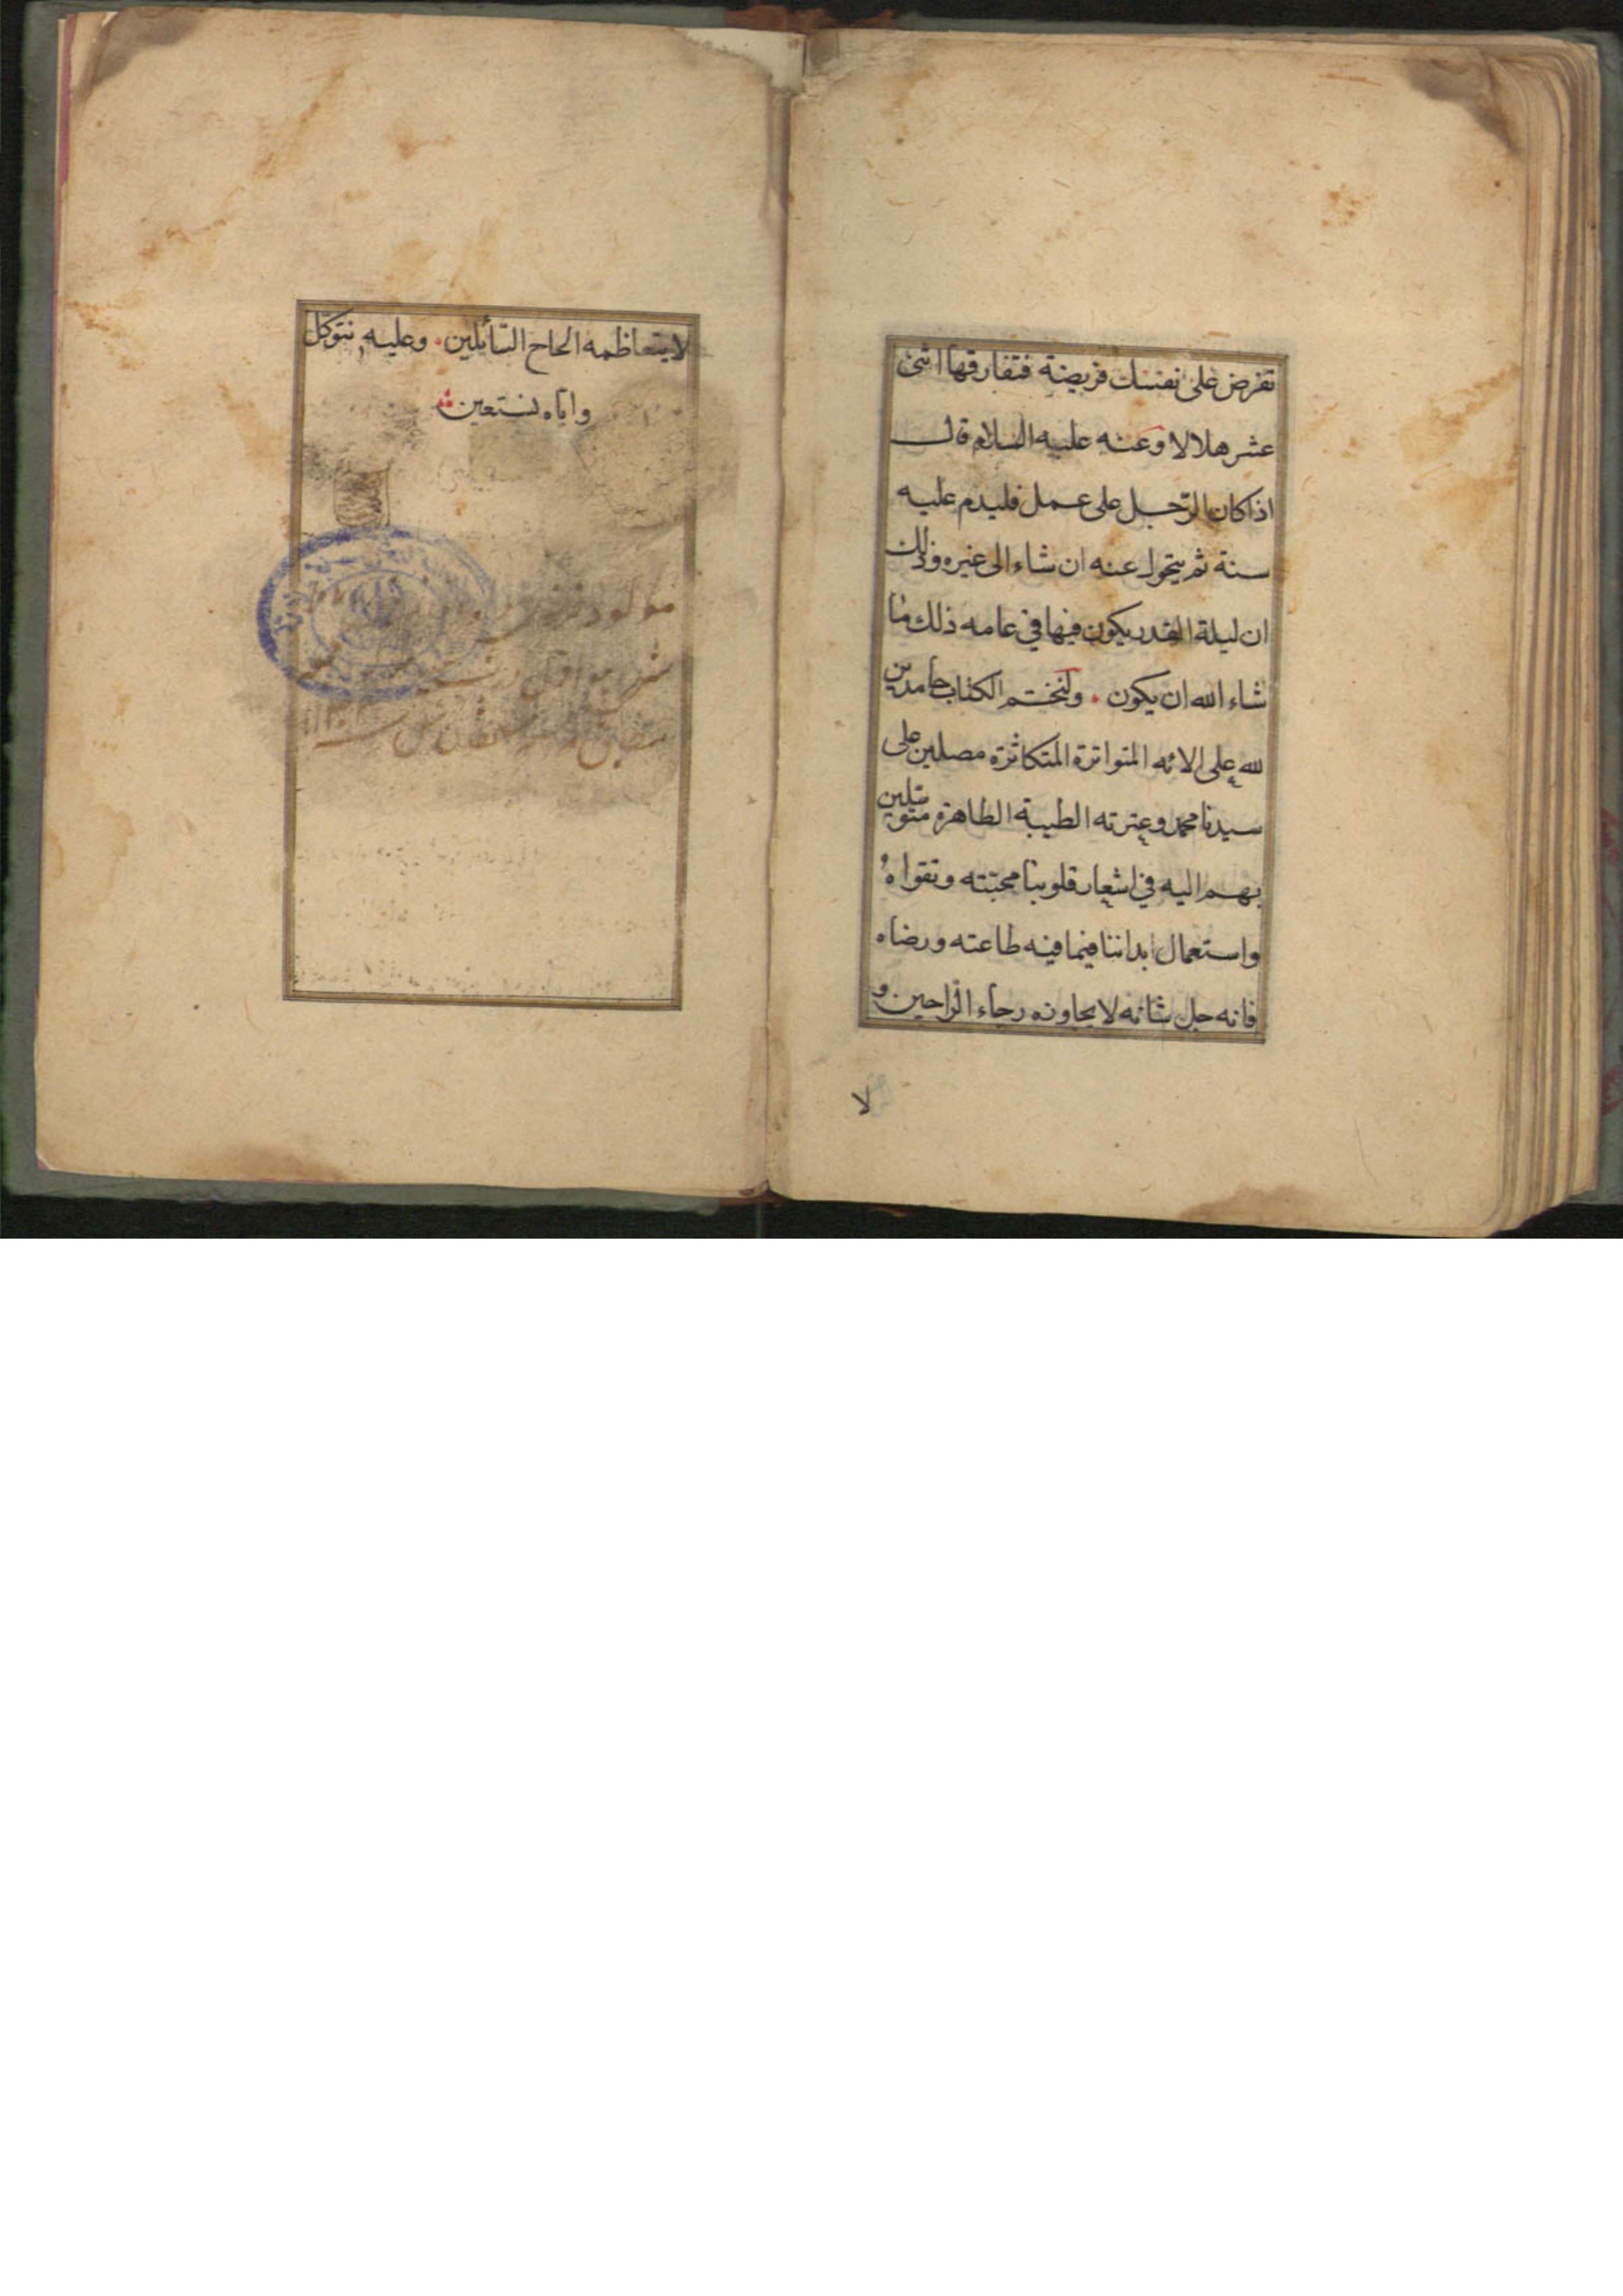 تفرض على نفسك فريضة فتفارقها اثنى
عشر هلالا وعنه عليه السلام قال
اذا كان الرّجل على عمل فليدم عليه
سنة ثم يتحول عنه ان شاء الى غيره وذلك
ان ليلة القدر يكون فيها في عامه ذلك ما
شاء الله ان يكون . ولنختم الكتاب حامدين
لله على الائه المتواترة المتكاثرة مصلين على
سيدنا محمد وعترته الطيبة الطاهرة متوسّلين
بهم اليه في اشعار قلوبنا محبّته وتقواه
واستعمال ابداننا فيما فيه طاعته ورضاه
فانه جل شأنه لا يجاوزه رجاء الرّاجين و
لا
لا يتعاظمه الحاح السّائلين . وعليه نتوكل
وايّاه نستعين
مولود